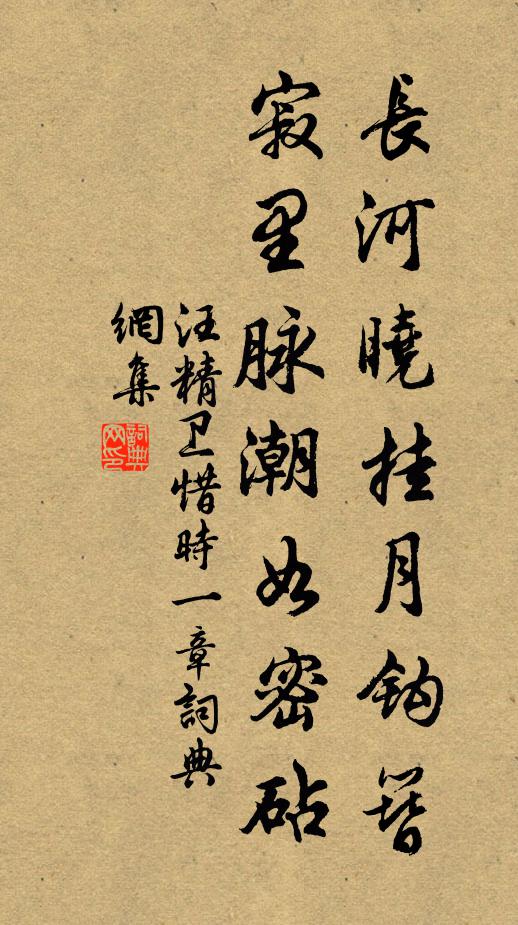 長河曉挂月鈎簪
寂里脉潮如密砧
汪精卫惜時一章詞典
網集
詞典网印